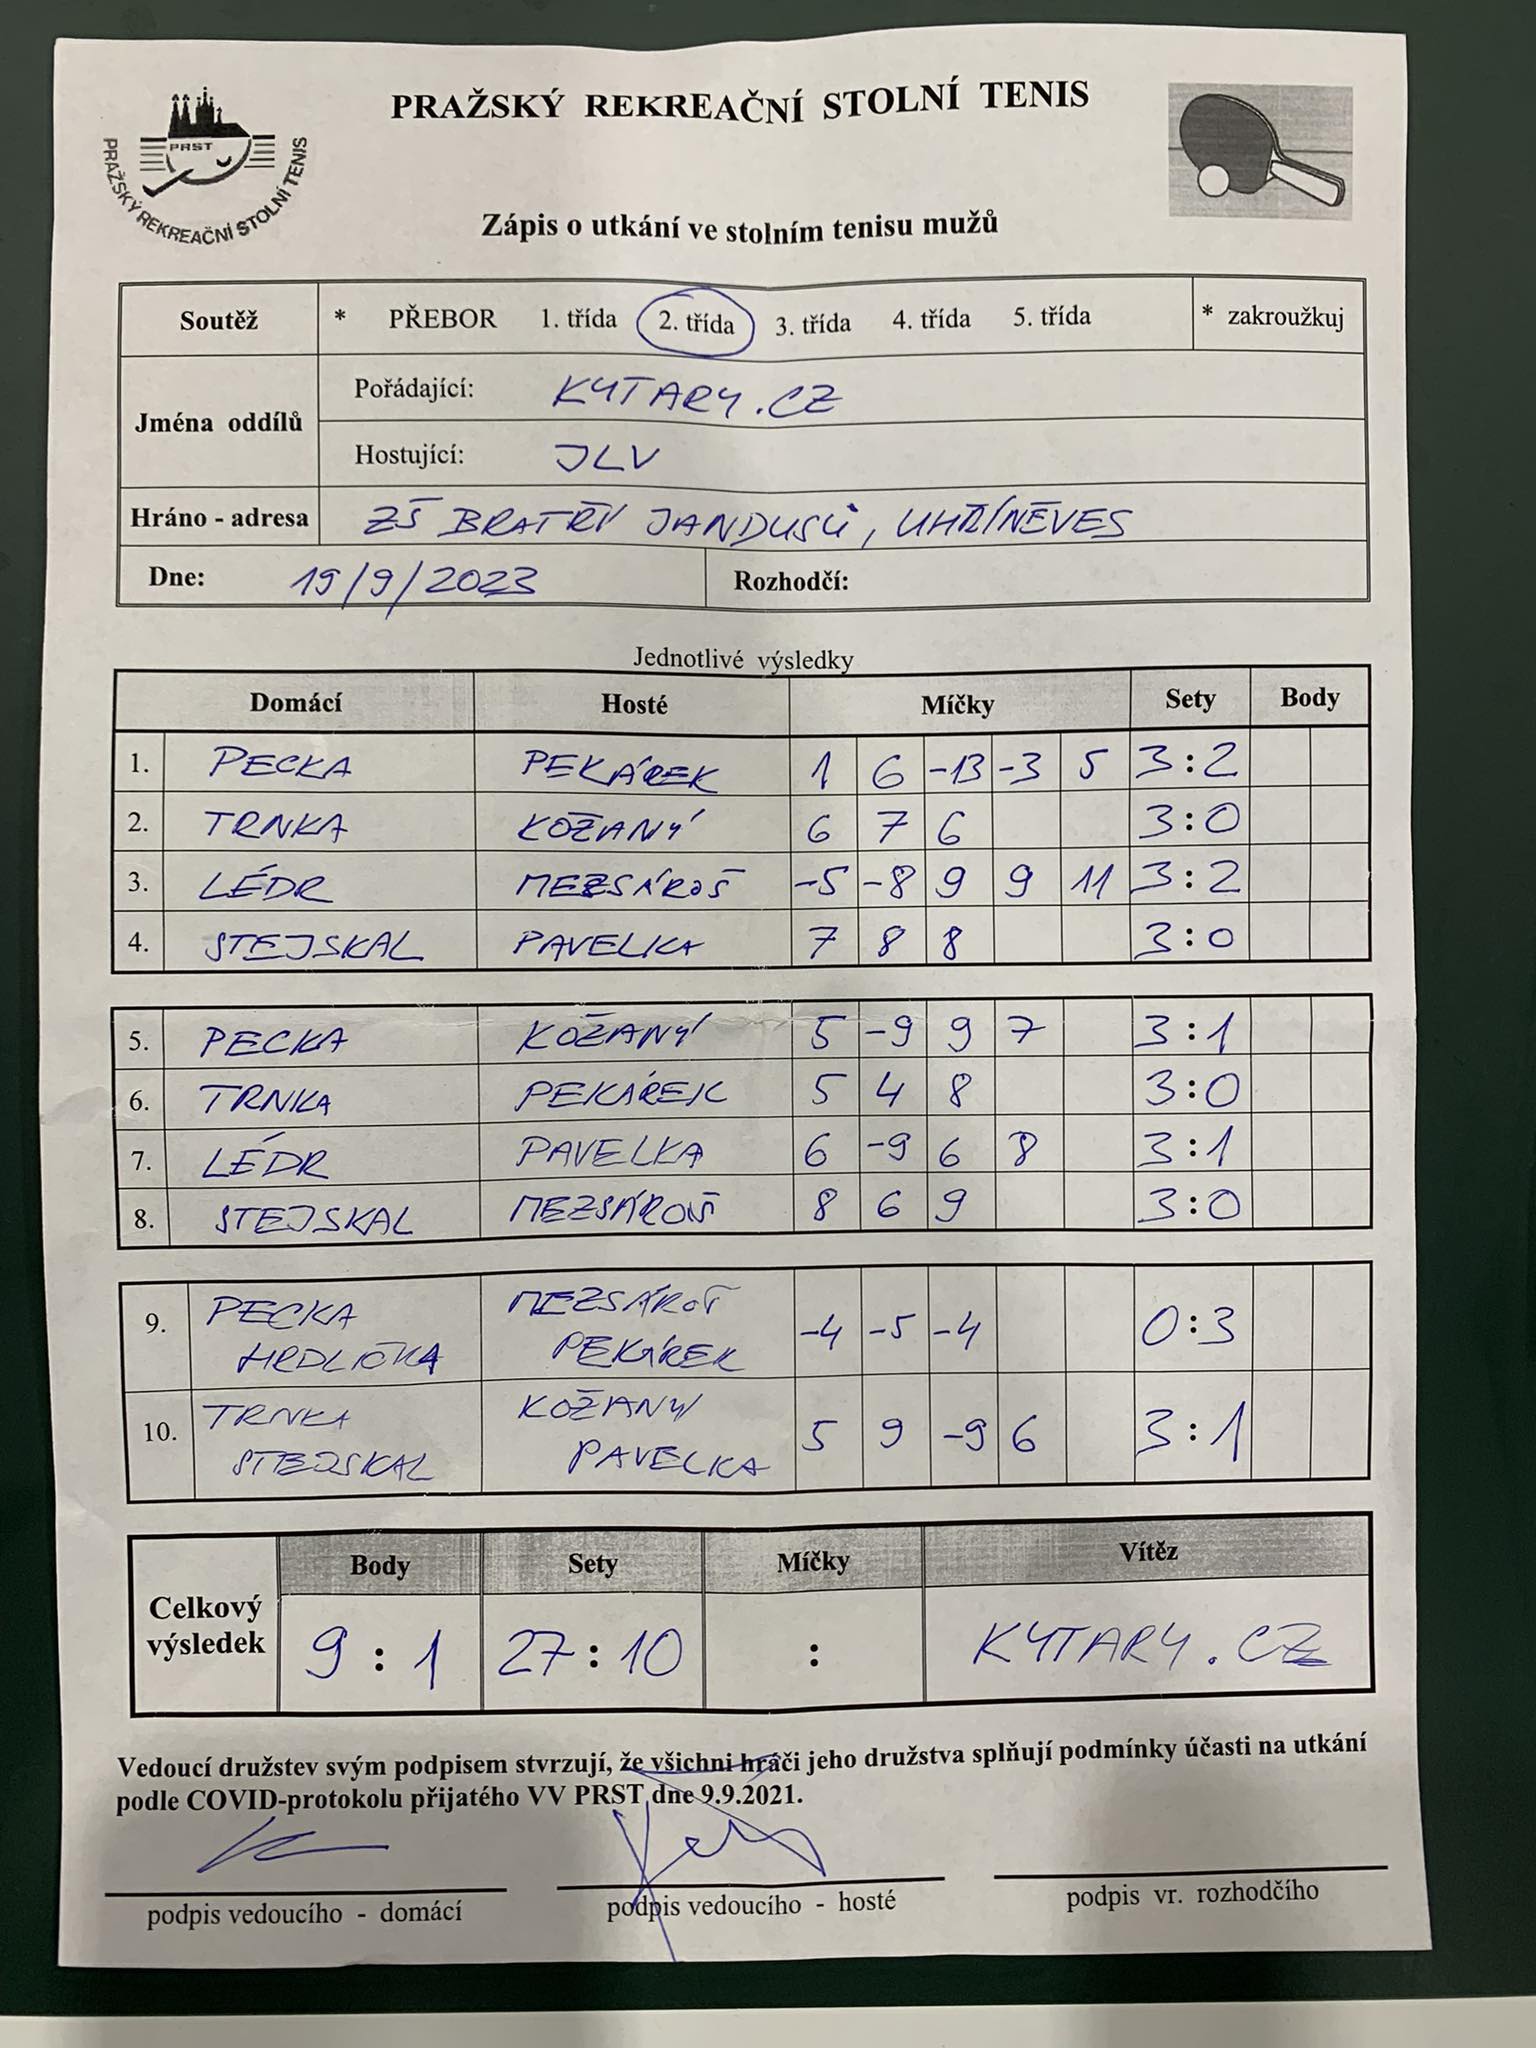 PRAŽSKÝ REKREAČNÍ STOLNÍ TENIS
PRST
PRAŽSKÝ REKREAČNÍ STOLNÍ TENIS
Zápis o utkání ve stolním tenisu mužů
Soutěž * PŘEBOR 1. třída 2. třída 3. třída 4. třída 5. třída * zakroužkuj
Jména oddílů
Pořádající: KYTARY.CZ
Hostující: JLV
Hráno - adresa ZŠ BRATŘÍ JANDUSŮ, UHŘÍNĚVES
Dne: 19/9/2023 Rozhodčí:
Jednotlivé výsledky
Domácí Hosté Míčky Sety Body
1. PECKA PEKÁREK 1 6 -13 -3 5 3:2
2. TRNKA KOŽANÝ 6 7 6 3:0
3. LÉDR MEZSÁROŠ -5 -8 9 9 11 3:2
4. STEJSKAL PAVELKA 7 8 8 3:0
5. PECKA KOŽANÝ 5 -9 9 7 3:1
6. TRNKA PEKÁREK 5 4 8 3:0
7. LÉDR PAVELKA 6 -9 6 8 3:1
8. STEJSKAL MEZSÁROŠ 8 6 9 3:0
9. PECKA MEZSÁROŠ -4 -5 -4 0:3
HRDLIČKA PEKÁREK
10. TRNKA KOŽANÝ 5 9 -9 6 3:1
STEJSKAL PAVELKA
Celkový výsledek
Body Sety Míčky Vítěz
9:1 27:10 : KYTARY.CZ
Vedoucí družstev svým podpisem stvrzují, že všichni hráči jeho družstva splňují podmínky účasti na utkání
podle COVID-protokolu přijatého VV PRST dne 9.9.2021.
podpis vedoucího - domácí podpis vedoucího - hosté podpis vr. rozhodčího